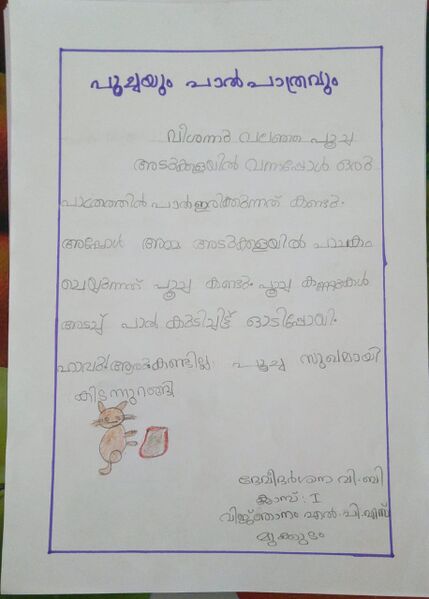 പൂച്ചയും പാൽപാത്രവും
വിശന്നു വലഞ്ഞ പൂച്ച
അടുക്കളയിൽ വന്നപ്പോൾ ഒരു
പാത്രത്തിൽ പാൽഇരിക്കുന്നത് കണ്ടു.
അപ്പോൾ അമ്മ അടുക്കളയിൽ പാചകം
ചെയ്യുന്നത് പൂച്ച കണ്ടു. പൂച്ച കണ്ണുകൾ
അടച്ച് പാൽ കുടിച്ചിട്ട് ഓടിപ്പോയി.
ഹാവൂ! ആരുംകണ്ടില്ല. പൂച്ച സുഖമായി
കിടന്നുറങ്ങി
ദേവീദർശന വി.ബി
ക്ലാസ് : I
വിജ്ഞാനം എൽ.പി.എസ്
മുക്കുടം